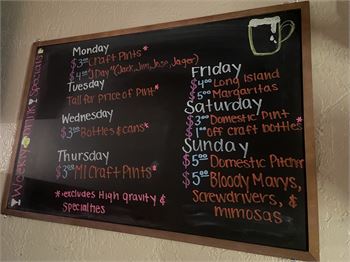 Weekly Drink Specials
Monday
$3.00 Craft Pints*
$4.00 "J Day" (Jack, Jim, Jose, Jager)
Tuesday
Tall for price of Pint*
Wednesday
$3.00 Bottles & cans*
Thursday
$3.00 MI Craft Pints*
*-excludes High gravity &
Specialties
Friday
$4.00 Long Island
$5.00 Margaritas
Saturday
$3.00 Domestic Pint
$1.00 off craft bottles*
Sunday
$5.00 Domestic Pitcher
$5.00 Bloody Marys,
Screwdrivers, &
mimosas